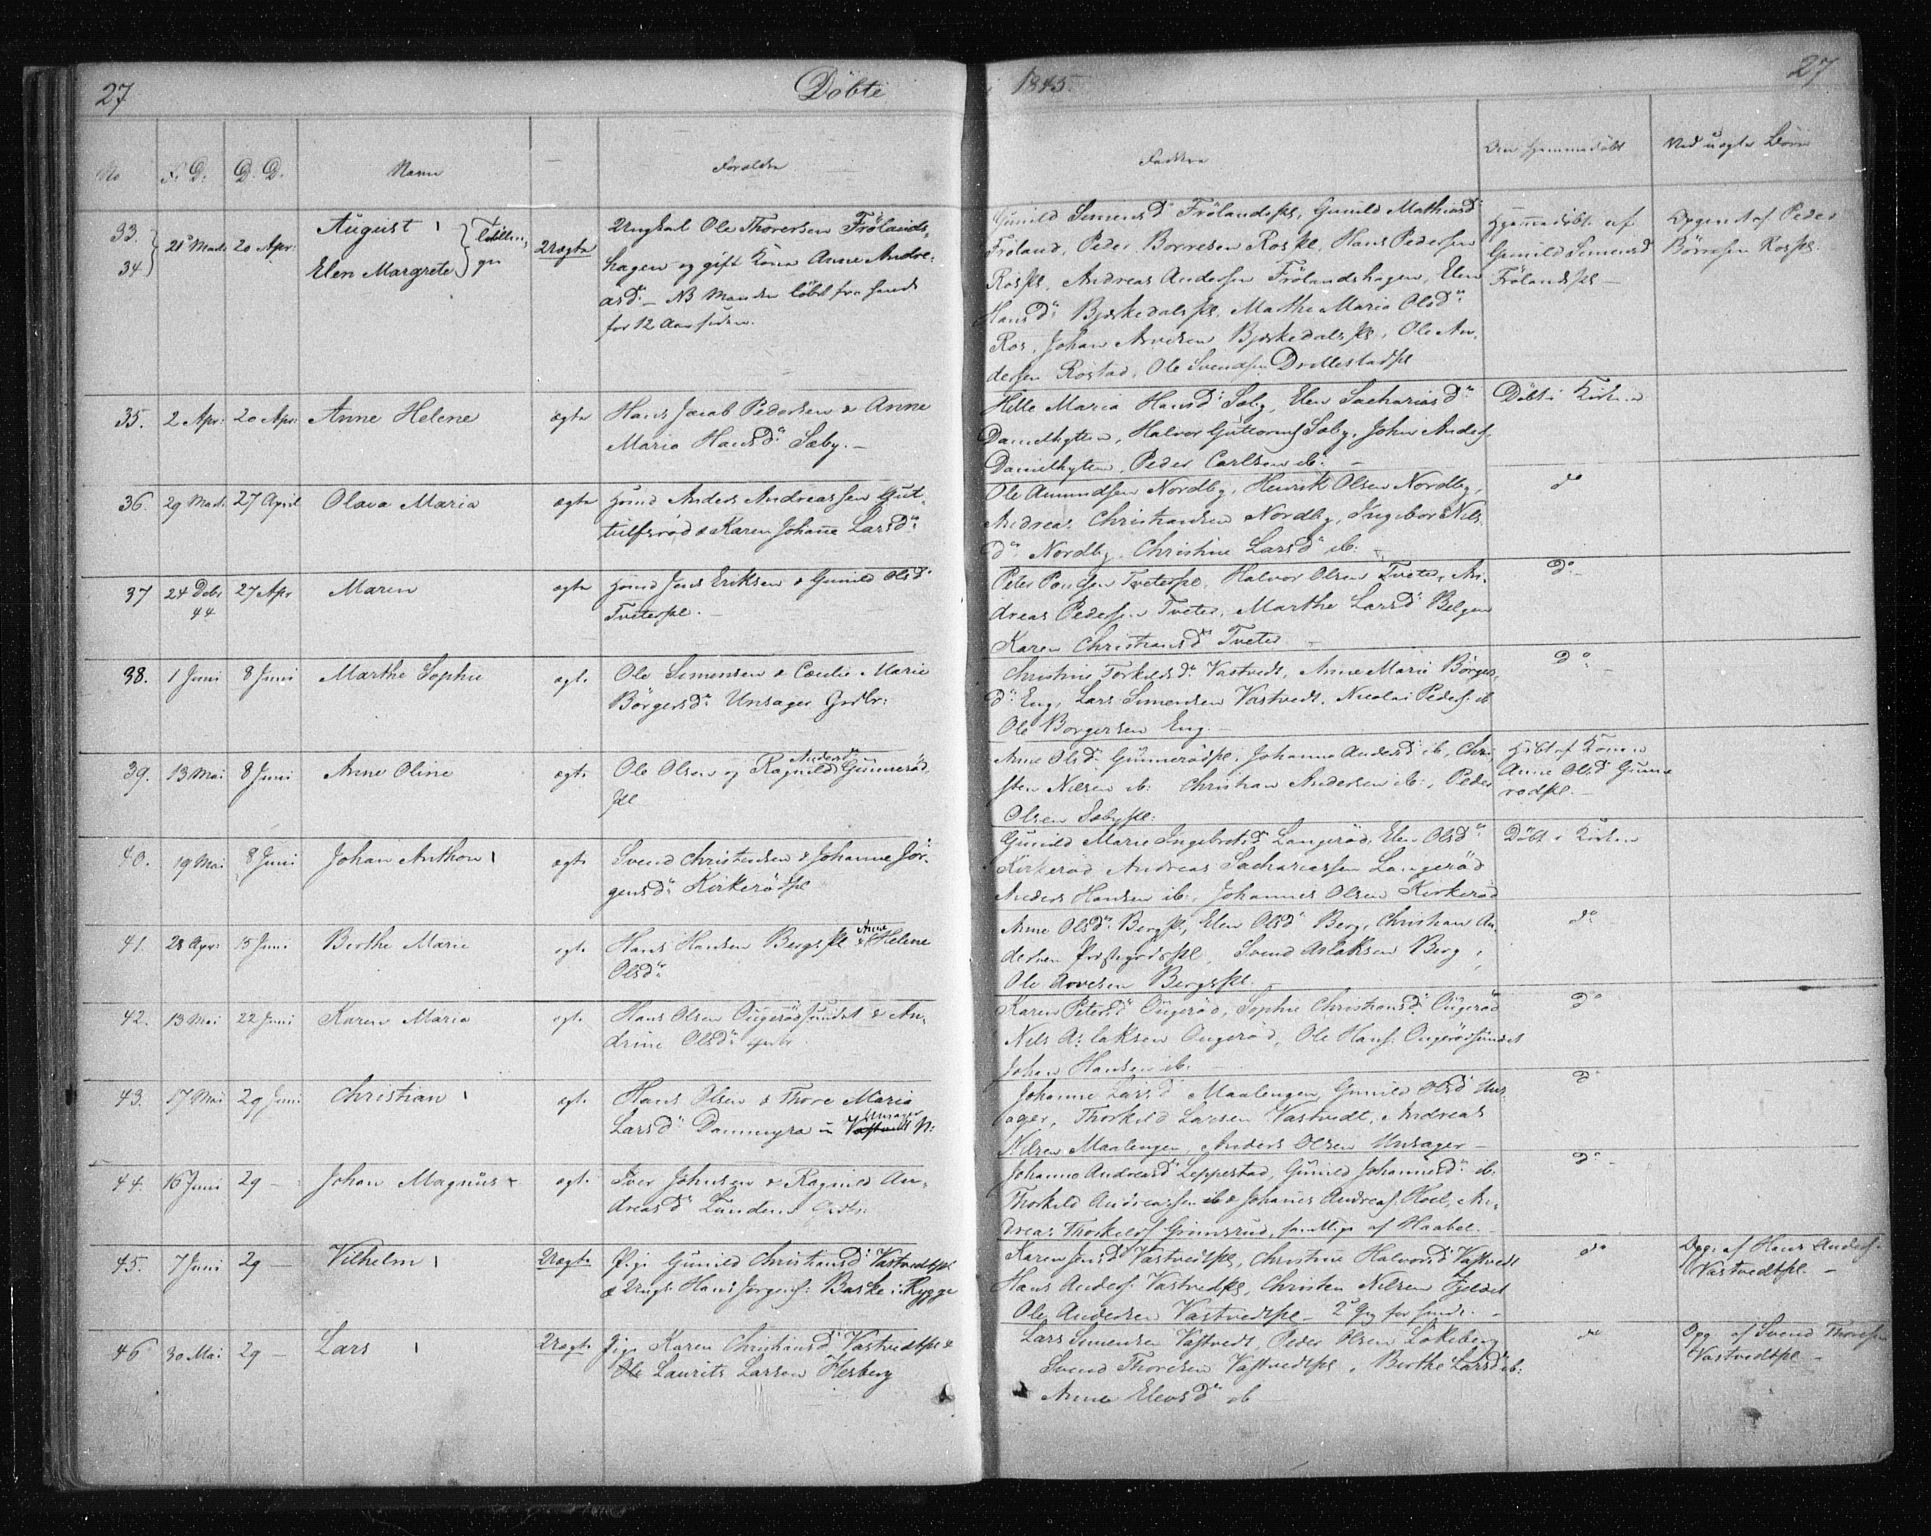 27 Döbte 1845. 27
No F. D: D. D. Navn Forældre Faddere Om Hjemmedöbt Ved uægte Börn
33. 34 21 Marts 20 Apr: August Elen Margrete Tvillinger Uægte
Ungkal Ole Thoresen Frölands-
hagen og gift Kone Anne Andre-
asd. NB Manden löbet fra hende
for 12 Aar siden.
Gunild Simensd Frölandspl, Gunild Mathiasd
Fröland, Peder Borresen Rospl, Hans Pedersen
Rospl, Andreas Andersen Frölandshagen, Elen
Hansd Bjerkedalspl, Mathe Maria Olsd
Ros, Johan Arvesen Bjerkedalspl, Ole An-
dersen Rostad, Ole Svendsen Drillestadpl
Hjemmedöbt af
Gunild Simensd
Frölandspl
Opgivet af Peder
Börresen Rospl
35. 2 Apr: 20 Apr: Anne Helene ægte
Hans Jacob Pedersen & Anne
Maria Hansd Sæby.
Helle Maria Hansd Sæby, Elen Sachariasd
Damelhytten, Halvor Guttorms Sæby, John Anders.
Damelhytten, Peder Carlsen ib:
Döbt i Kirken
36. 29 Marts 27 April Olava Maria ægte
Huusmd Anders Andreassen Gut-
tulfsröd & Karen Johanne Larsd
Ole Amundsen Nordby, Henrik Olsen Nordby,
Andreas Christiansen Nordby, Ingebor Nils-
d Nordby, Christine Larsd ib:
do
37 24 Debr 44 27 Apr Maren ægte
Huusmd Jens Eriksen & Gunild Olsd
Tveterpl.
Peter Poulsen Tveterpl, Halvor Olsen Tveter, An-
dreas Pedersen Tveter, Marthe Larsd Belgen
Karen Christiansd Tveter
do
38. 1 Juni 8 Juni Marthe Sophie ægt.
Ole Simensen & Cecilie Marie
Börgersd Unsager Grdbr:
Christine Torkildsd Vastvedt, Anne Marie Börgers-
d Eng, Lars Simensen Vastvedt, Nicolai Peders. ib
Ole Borgersen Eng.
do
39. 13 Mai 8 Juni Anne Oline ægt.
Ole Olsen og Ragnild Andersd Gunneröd
pl
Anne Olsd Gunnerödpl, Johanne Andersd ib, Chri-
sten Nilsen ib: Christian Andersen ib:, Peder
Olsen Sæbypl:
Hdbt af Konen
Anne Olsd Gunne
rödpl.
40. 19 Mai 8 Juni Johan Anthon ægt.
Svend Christensen & Johanne Jör-
gensd Kirkerödpl
Gunild Marie Ingebretsd Langeröd, Elen Olsd
Kirkeröd Andreas Sachariassen Langeröd
Anders Hansen ib:, Johannes Olsen Kirkeröd
Döbt i Kirken
41. 28 Apr: 15 Juni Berthe Marie ægt.
Hans Hansen Bergspl & Anne Helene
Olsd
Anne Olsd Bergpl, Elen Olsd Berg, Christian An-
dersen Prestegrdspl, Svend Aslaksen Berg,
Ole Arvesen Bergspl.
do
42. 13 Mai 22 Juni Karen Maria ægt.
Hans Olsen Ougerödsundet & An-
drine Olsd
Karen Petersd Ougeröd, Sophie Christiansd Ougeröd
Nils Aslaksen Ougeröd, Ole Hans. Ougerödsundet
Johan Hansen ib:
do
43. 17 Mai 29 Juni Christian ægt.
Hans Olsen & Thore Maria
Larsd Dammyra u Vastvedt Unsager N:
Johanne Larsd Maalengen, Gunild Olsd Uns-
ager, Thorkild Larsen Vastvedt, Andreas
Nilsen Maalengen, Anders Olsen Unsager
do
44. 16 Juni 29 Johan Magnus ægt.
Iver Johnsen & Ragnild An-
dreasd Lunden Grdbr:
Johanne Andreasd Leppestad, Gunild Johannesd ib:
Thorkild Andreassen ib & Johanes Andreas. Hoel, An-
dreas Thorkilds. Grimsrud, samtlige af Haabøl.
do
45. 7 Juni 29 Vilhelm Uægt.
Pige Gunild Christiansd Vastvedtpl
& Ungk Hans Jörgens: Baske i Rygge
Karen Jensd Vastvedtpl, Christine Halvorsd Vastvedt
Hans Anders. Vastvedtpl, Christen Nilsen Fjeldet
Ole Andersen Vastvedtpl 2 Gg for hende.
do
Opg: af Hans Anders.
Vastvedtpl.
46 30 Mai 29 Lars Uægt.
Pige Karen Christiansd Vastvedtpl &
Ole Laurits Larsen Hesberg
Lars Simensen Vastvedt, Peder Olsen Lökeberg
Svend Thoresen Vastvedtpl, Berthe Larsd ib:
Anne Elevsd ib
do
Opg af Svend Thoresen
Vastvedtpl